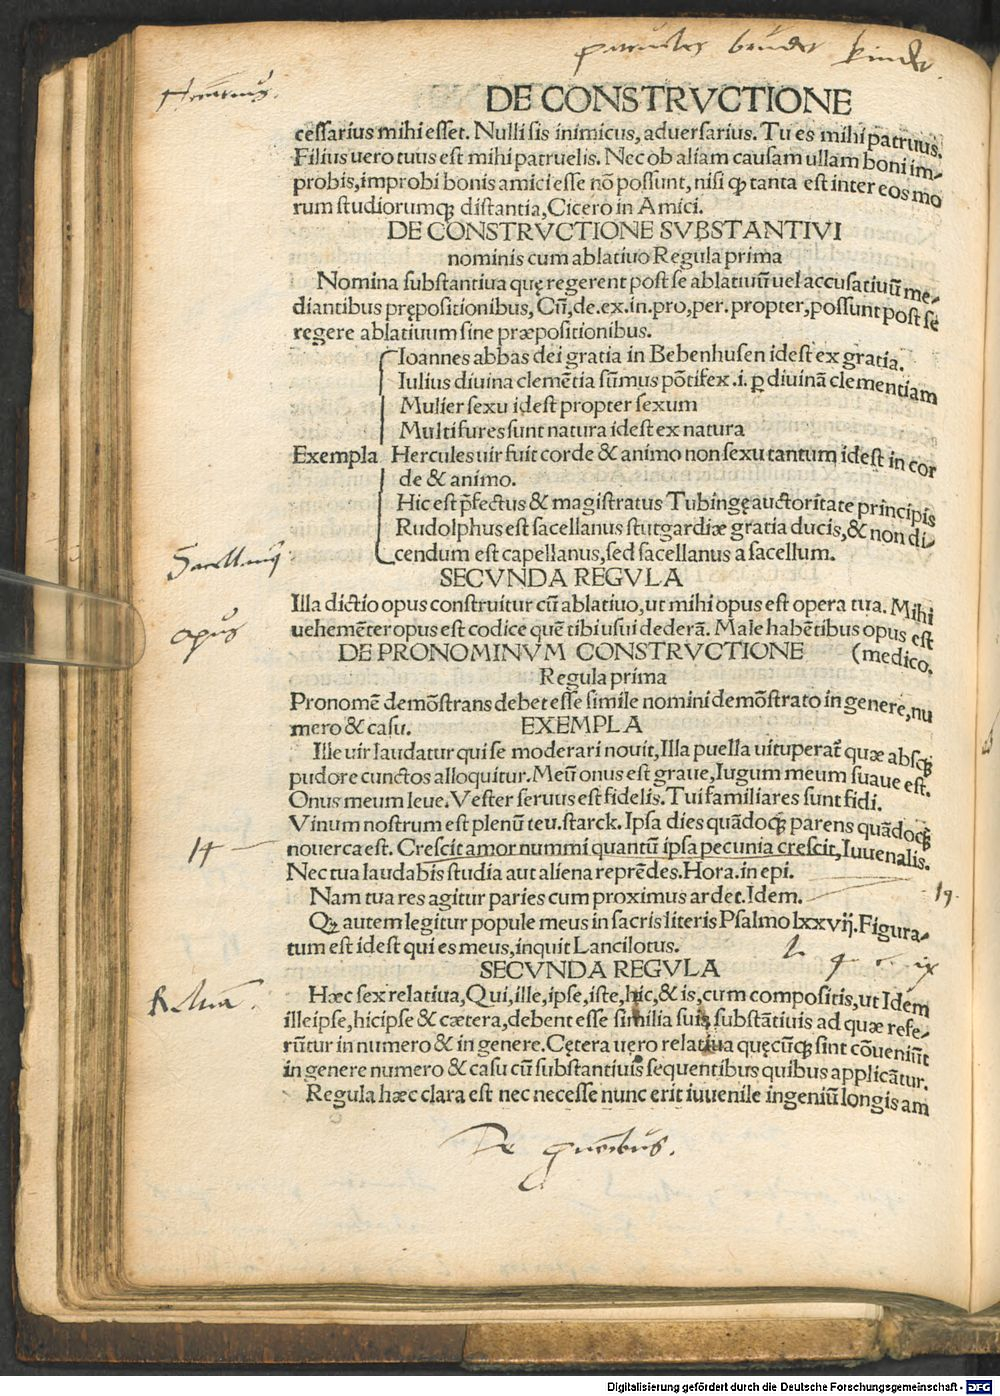 patrueles bruder kinder.
DE CONSTRVCTIONE
cessarius mihi esset. Nulli sis inimicus, aduersarius. Tu es mihi patruus.
Filius uero tuus est mihi patruelis. Nec ob aliam causam ullam boni im-
probis, improbi bonis amici esse nō possunt, nisi ꝙ tanta est inter eos mo
rum studiorumqꝫ distantia, Cicero in Amici.
DE CONSTRVCTIONE SVBSTANTIVI
nominis cum ablatiuo Regula prima
Nomina substantiua quę regerent post se ablatiuū uel accusatiuū me-
diantibus prępositionibus, Cū, de. ex. in. pro, per. propter, possunt post se
regere ablatiuum sine præpositionibus.
Ioannes abbas dei gratia in Bebenhusen idest ex gratia.
Iulius diuina clemētia sūmus pōtifex .i. ꝑ diuinā clementiam
Mulier sexu idest propter sexum
Multi fures sunt natura idest ex natura
Exempla Hercules uir fuit corde & animo non sexu tantum idest in cor
de & animo.
Hic est p̄fectus & magistratus Tubingę auctoritate principis
Rudolphus est sacellanus stutgardiæ gratia ducis, & non di-
cendum est capellanus, sed sacellanus a sacellum.
Sacellanus
SECVNDA REGVLA
Illa dictio opus construitur cū ablatiuo, ut mihi opus est opera tua. Mihi
opus
uehemēter opus est codice quē tibi usui dederā. Male habētibus opus est
DE PRONOMINVM CONSTRVCTIONE (medico.
Regula prima
Pronomē demōstrans debet esse simile nomini demōstrato in genere, nu
mero & casu. EXEMPLA
Ille uir laudatur qui se moderari nouit, Illa puella uituperat᷑ quæ absqꝫ
pudore cunctos alloquitur. Meū onus est graue, Iugum meum suaue est.
Onus meum leue. Vester seruus est fidelis. Tui familiares sunt fidi.
Vinum nostrum est plenū teu. starck. Ipsa dies quādoqꝫ parens quādoqꝫ
14
nouerca est. Crescit amor nummi quantū ipsa pecunia crescit, Iuuenalis.
Nec tua laudabis studia aut aliena reprēdes. Hora. in epi.
Nam tua res agitur paries cum proximus ardet. Idem.
Qꝫ autem legitur popule meus in sacris literis Psalmo lxxvij. Figura-
tum est idest qui es meus, inquit Lancilotus.
SECVNDA REGVLA
Hæc sex relatiua, Qui, ille, ipse, iste, hic, & is, cum compositis, ut Idem
ille ipse, hic ipse & cætera, debent esse similia suis substātiuis ad quæ refe-
rūtur in numero & in genere. Cętera uęro relatiua quęcūqꝫ sint cōueniūt
in genere numero & casu cū substantiuis sequentibus quibus applicātur.
Regula hæc clara est nec necesse nunc erit iuuenile ingeniū longis am
De